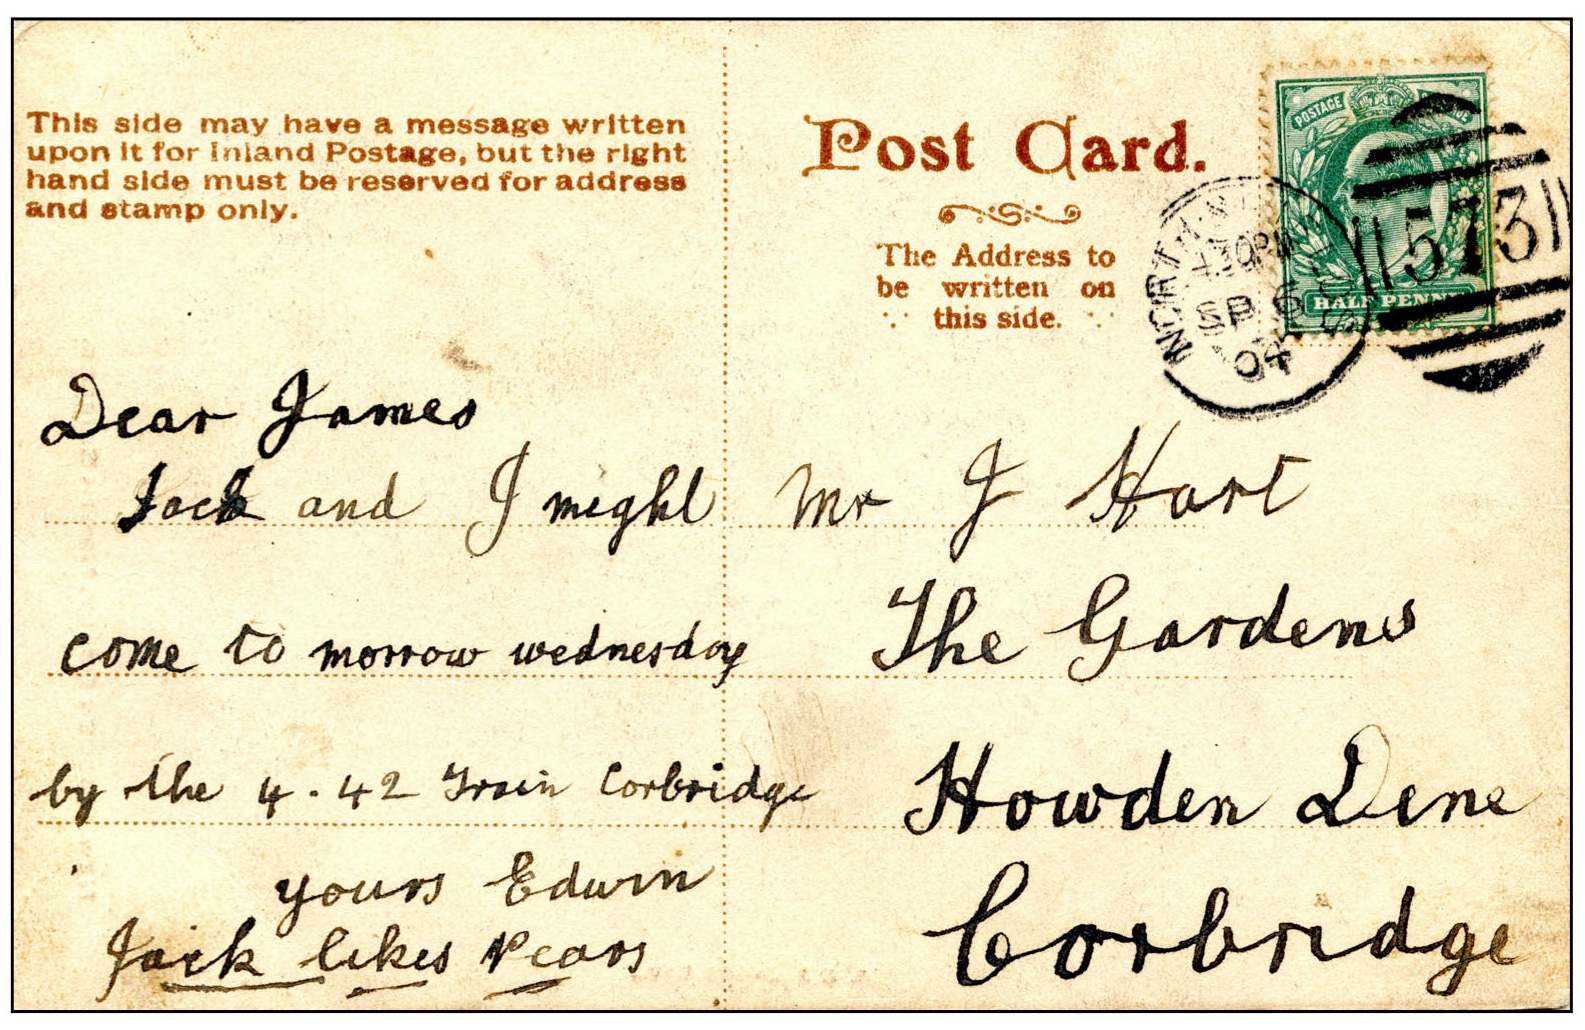 This side may have a message written
upon it for Inland Postage, but the right
hand side must be reserved for address
and stamp only.
Dear James
Jack and I might
come to morrow wednesday
by the 4.42 Train Corbridge
yours Edwin
Jack likes Pears
Post Card.
The Address to
be written on
this side.
POSTAGE
HALF PENNY
NORTH
4.30PM
SP 6
04
573
Mr J Hart
The Gardens
Howden Dene
Corbridge